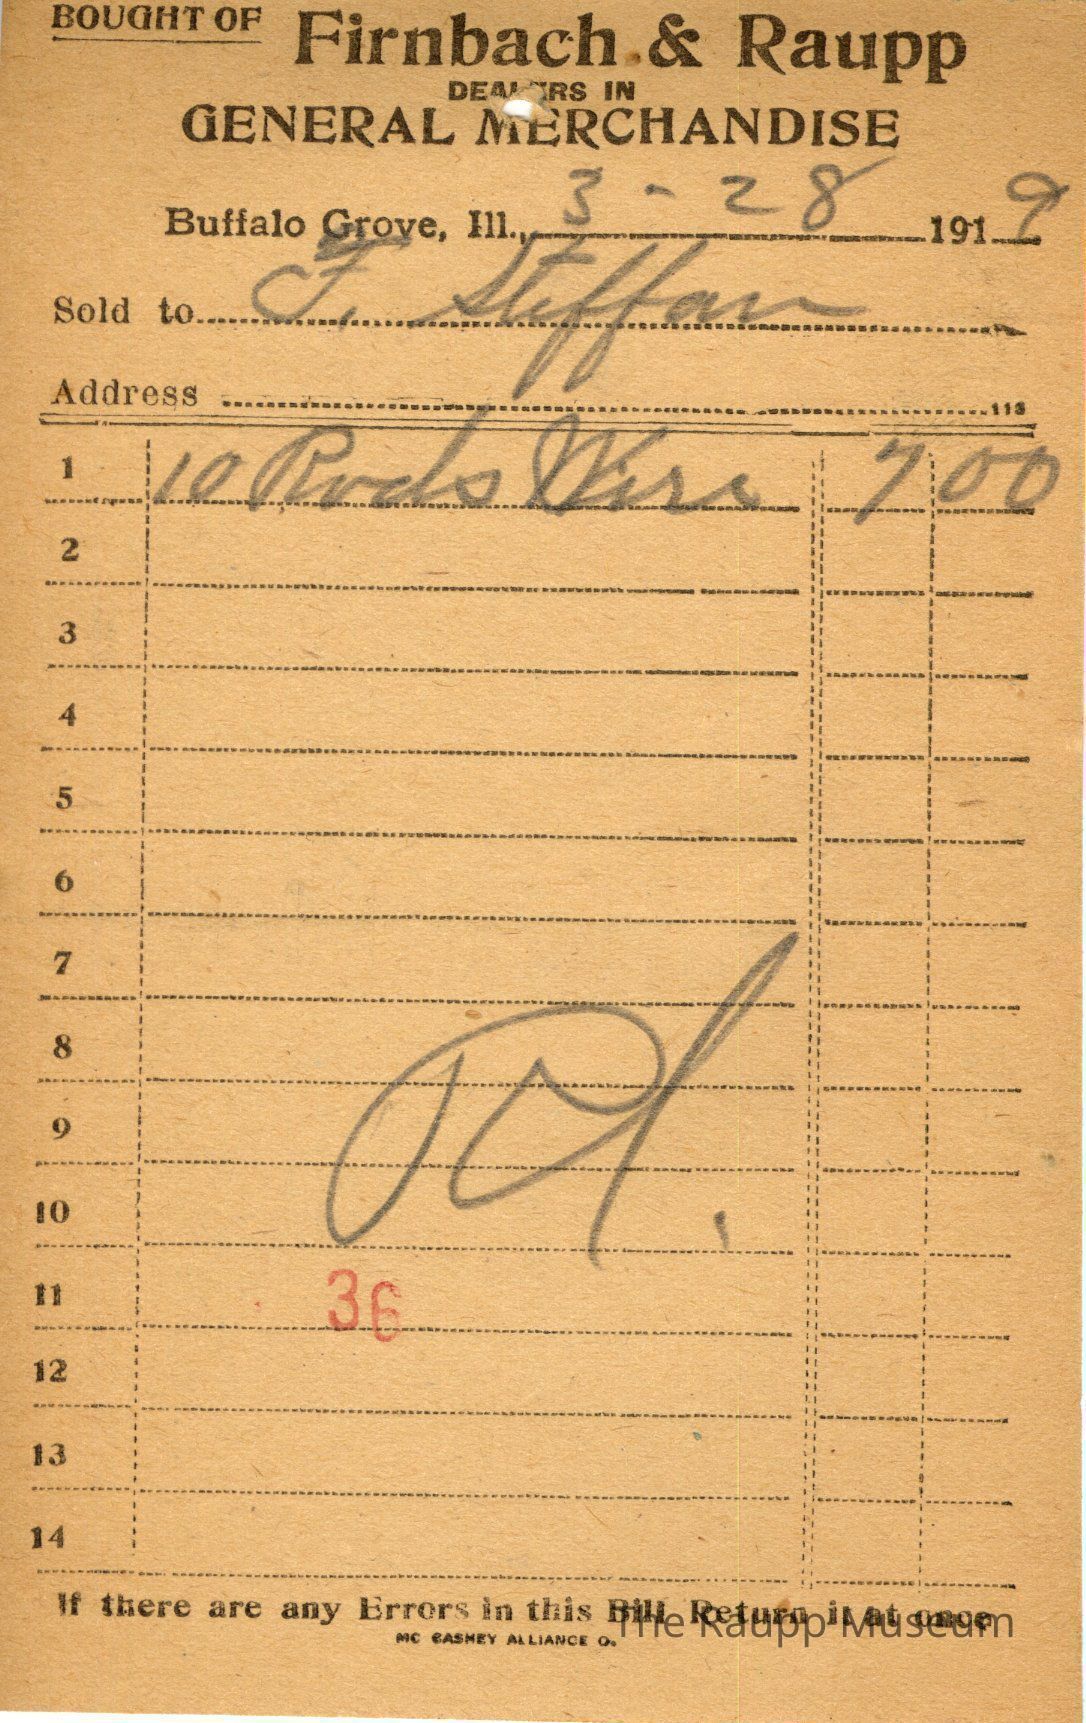 BOUGHT OF Firnbach & Raupp
DEALERS IN
GENERAL MERCHANDISE
Buffalo Grove, Ill., 3-28 1919
Sold to F. Steffan
Address 113
1 10 Rods Wire 7 00
2
3
4
5
6
7
8
9
10
11 36
12
13
14
If there are any Errors in this Bill Return it at once
The Raupp Museum
MC CASKEY ALLIANCE O.